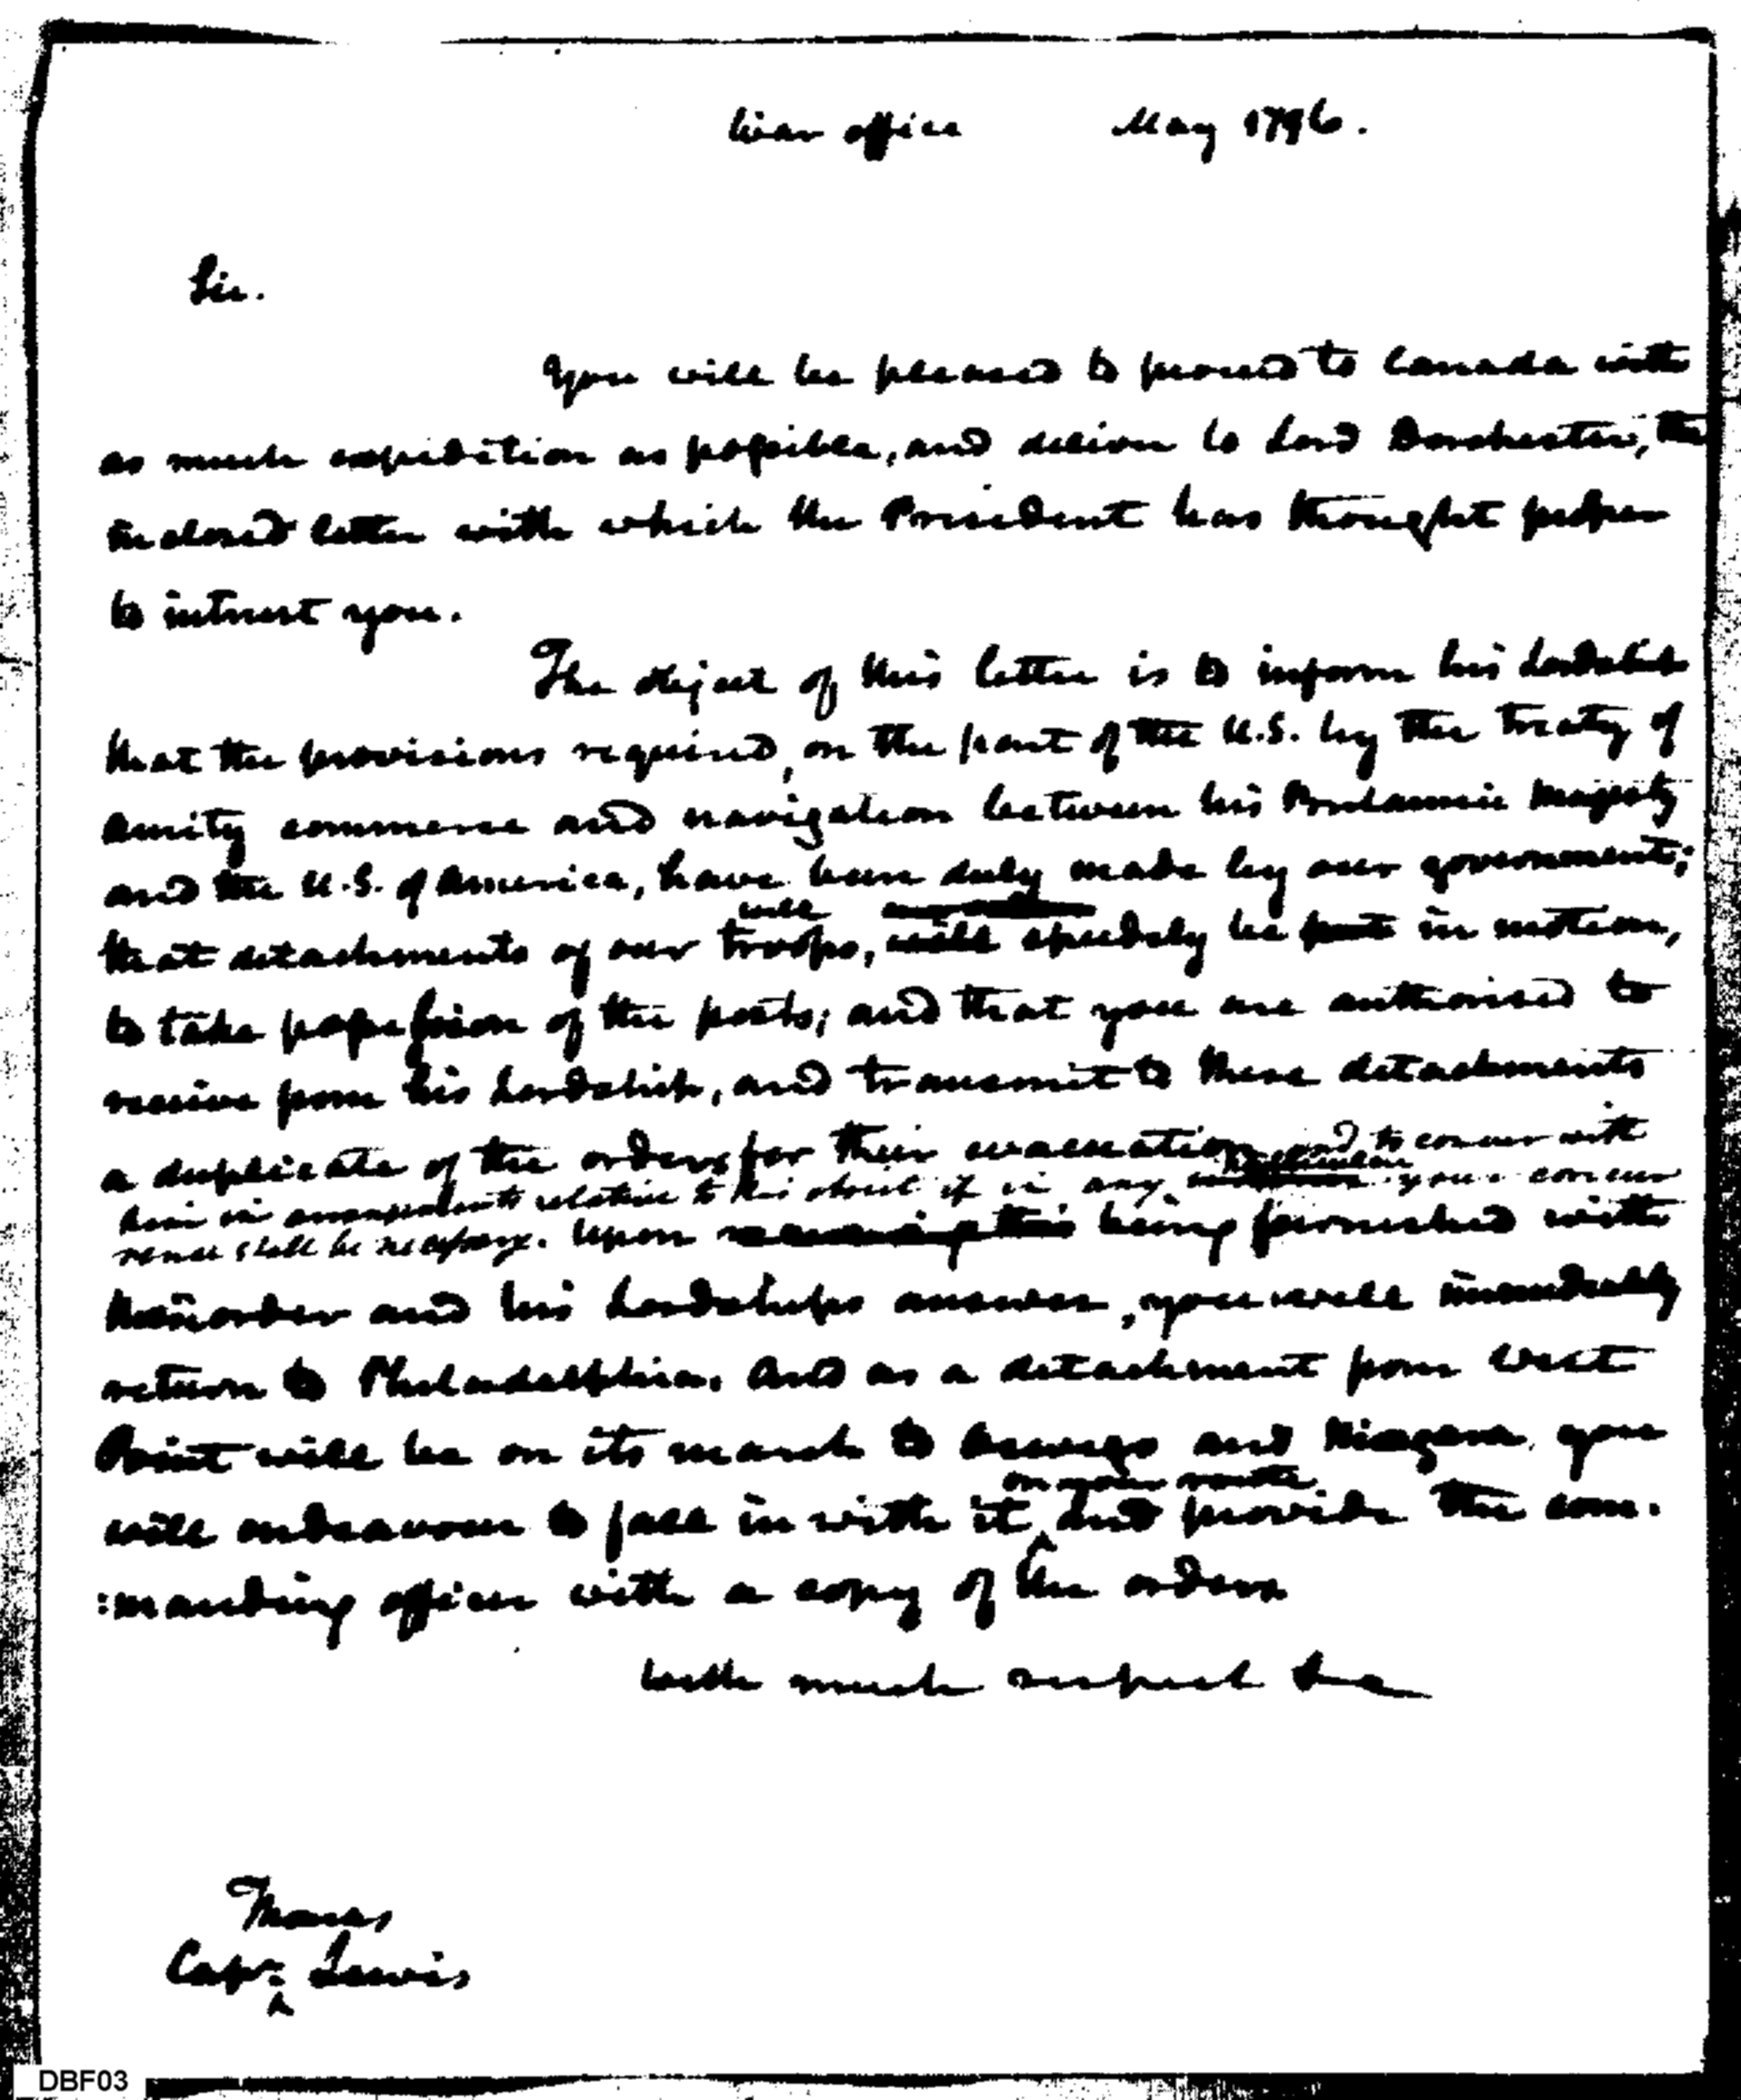 War office May 1796.
Sir.
You will be pleased to proceed to Canada with
as much expedition as possible, and deliver to Lord Dorchester, the
inclosed letter with which the President has thought proper
to intrust you.
The object of this letter is to inform his Lordship
that the provisions required, on the part of the U.S. by the treaty of
amity commerce and navigation between his Britannic Majesty
and the U.S. of America, have been duly made by our government;
will
that detachments of our troops, will speedily be put in motion,
to take possession of the posts; and that you are authorised to
receive from his Lordship, and transmit to these detachments
a duplicate of the orders for their evacuation and to concur with
him in arrangements relative to this object if in any your concur
rence shall be necessary. Upon receiving this being furnished with
order and his Lordships answer, you will immediately
return to Philadelphia. And as a detachment from West
Point will be on its march to Oswego and Niagara, you
on your route
will endeavour to fall in with it, and provide the com:
:manding officer with a copy of the orders
With much respect &c
Thomas
Capn. Lewis
^
DBF03